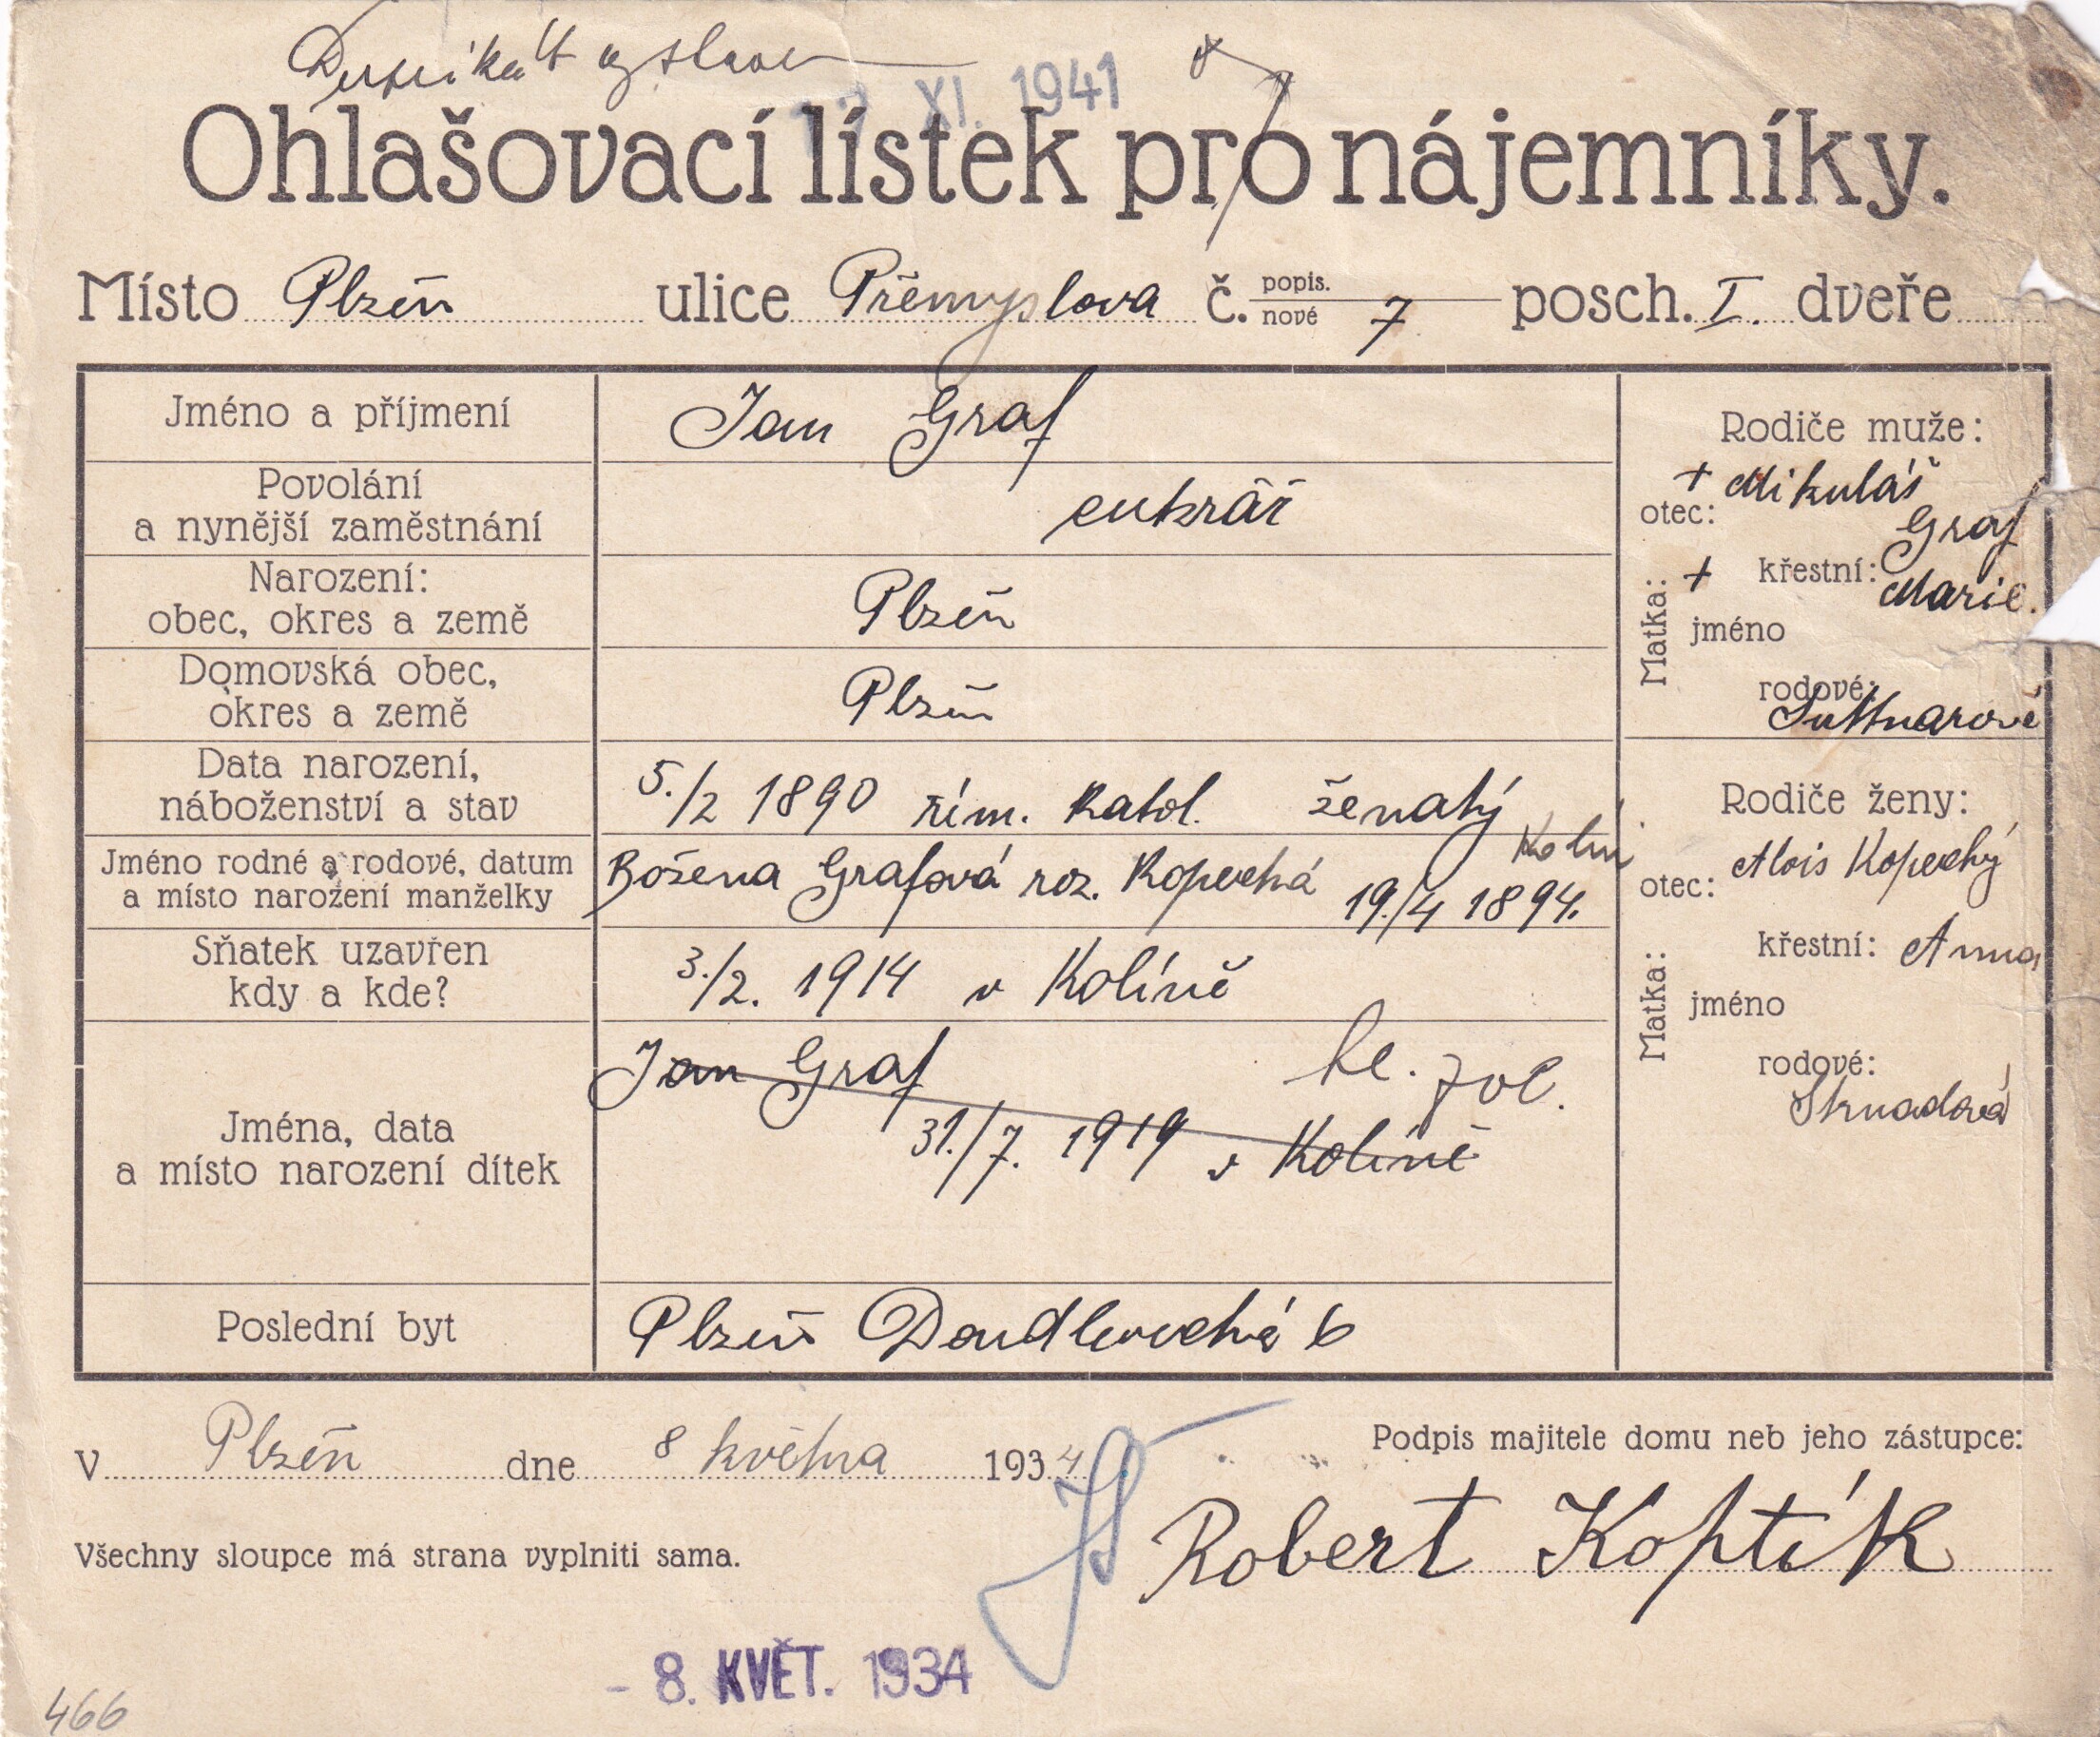 Duplikát vystaven
XI. 1941
Ohlašovací lístek pro nájemníky.
Místo Plzeň ulice Přemyslova č. popis. nové 7 posch. I. dveře
Jméno a příjmení
Jan Graf
Povolání
a nynější zaměstnání
cukrář
Narození:
obec, okres a země
Plzeň
Domovská obec,
okres a země
Plzeň
Data narození,
náboženství a stav
5./2 1890 řím. katol. ženatý
Jméno rodné a rodové, datum
a místo narození manželky
Božena Grafová roz. Kopecká 19./4 1894. Kolín
Sňatek uzavřen
kdy a kde?
3./2. 1914 v Kolíně
Jména, data
a místo narození dítek
Jan Graf
31./7. 1919 v Kolíně
Poslední byt
Plzeň Doudlevecká 6
Rodiče muže:
otec: + Mikuláš
Graf
Matka: + křestní: Marie.
jméno
rodové:
Suttnarová
Rodiče ženy:
otec: Alois Kopecký
Matka: křestní: Anna
jméno
rodové:
Strnadová
V Plzeň dne 8 května 1934
Podpis majitele domu neb jeho zástupce:
Robert Koptík
Všechny sloupce má strana vyplniti sama.
- 8. KVĚT. 1934
466